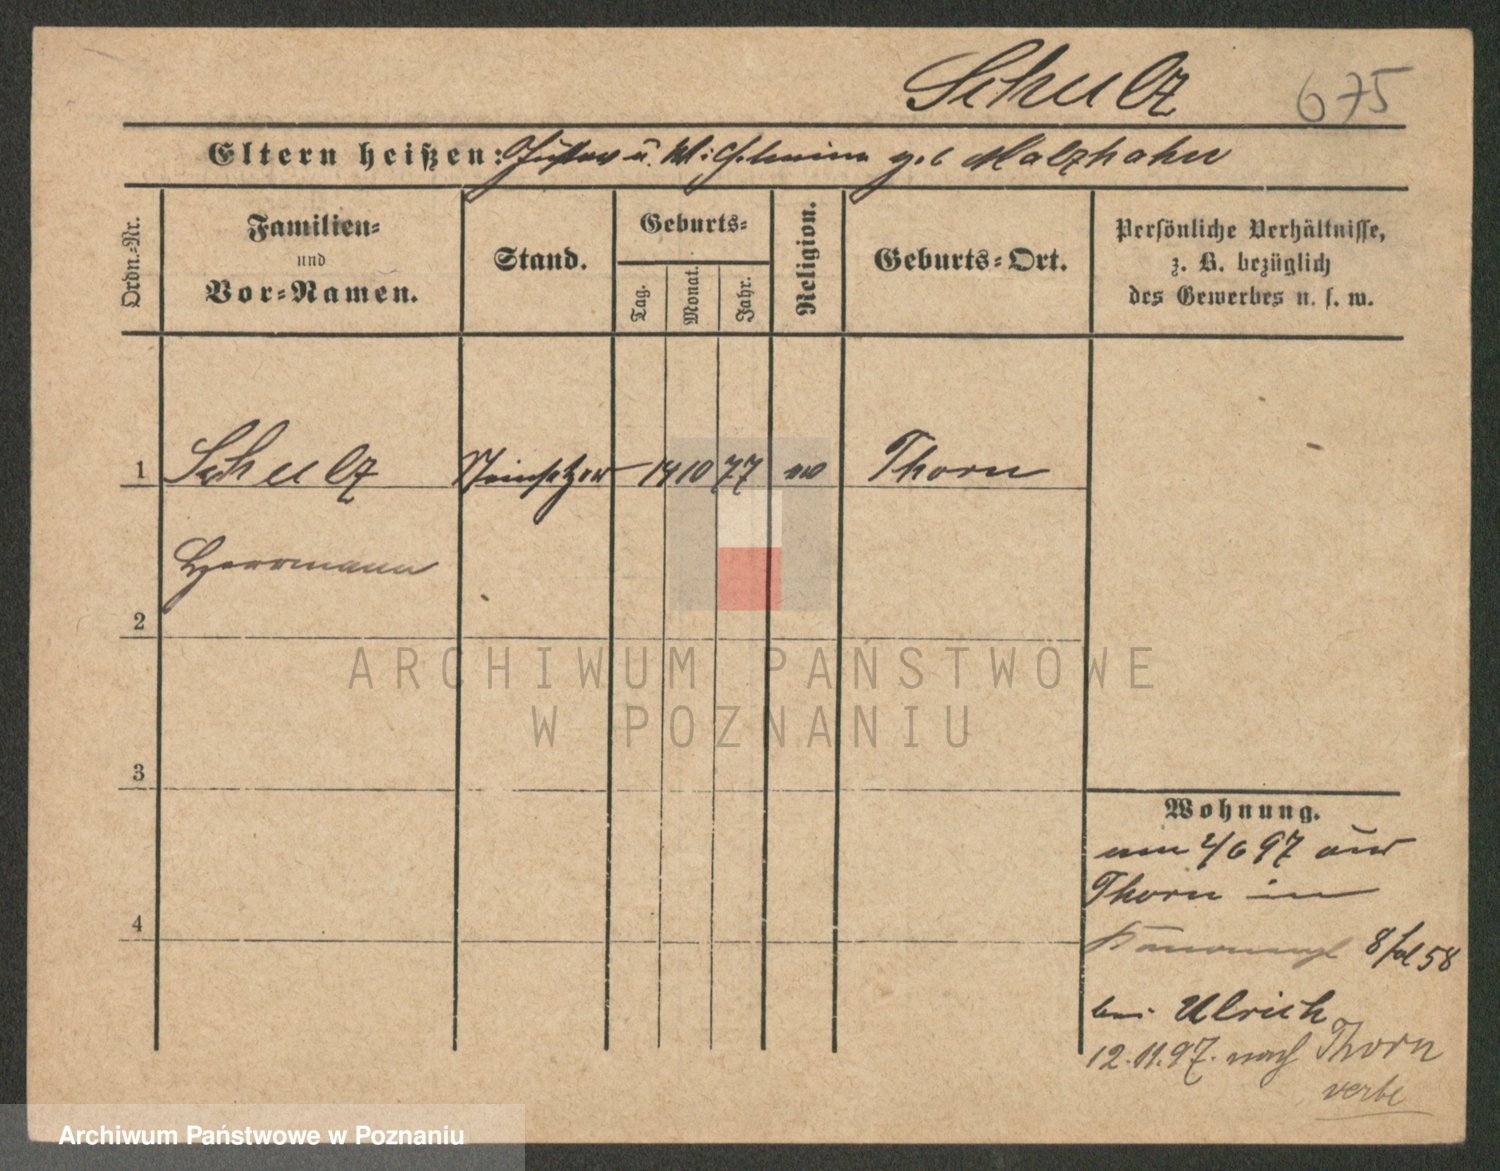 Schulz 675
Eltern heißen: Gustav u. Wilhelmine geb Malzhahn
Ordn.-Nr.
Familien-
und
Vor-Namen.
Stand.
Geburts-
Tag.
Monat.
Jahr.
Religion.
Geburts-Ort.
Persönliche Verhältnisse,
z. B. bezüglich
des Gewerbes u. s. w.
1 Schulz Steinsetzer 14 10 77 ev Thorn
Herrmann
2
3
4
Wohnung.
am 2/6 97 aus
Thorn in
8 fol 58
bei Ulrich
12.11.97. nach Thorn
verbl
ARCHIWUM PAŃSTWOWE
W POZNANIU
Archiwum Państwowe w Poznaniu